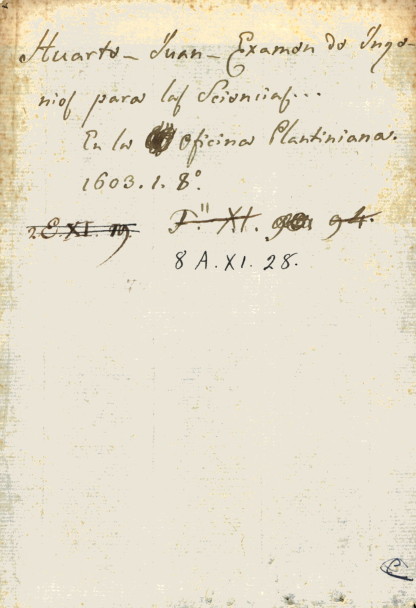 Huarte - Juan - Examen de Inge-
nios para las Sciencias...
En la Oficina Plantiniana.
1603. 1. 8º.
2. E. XI. 19. F." XI. 94.
8 A. XI. 28.